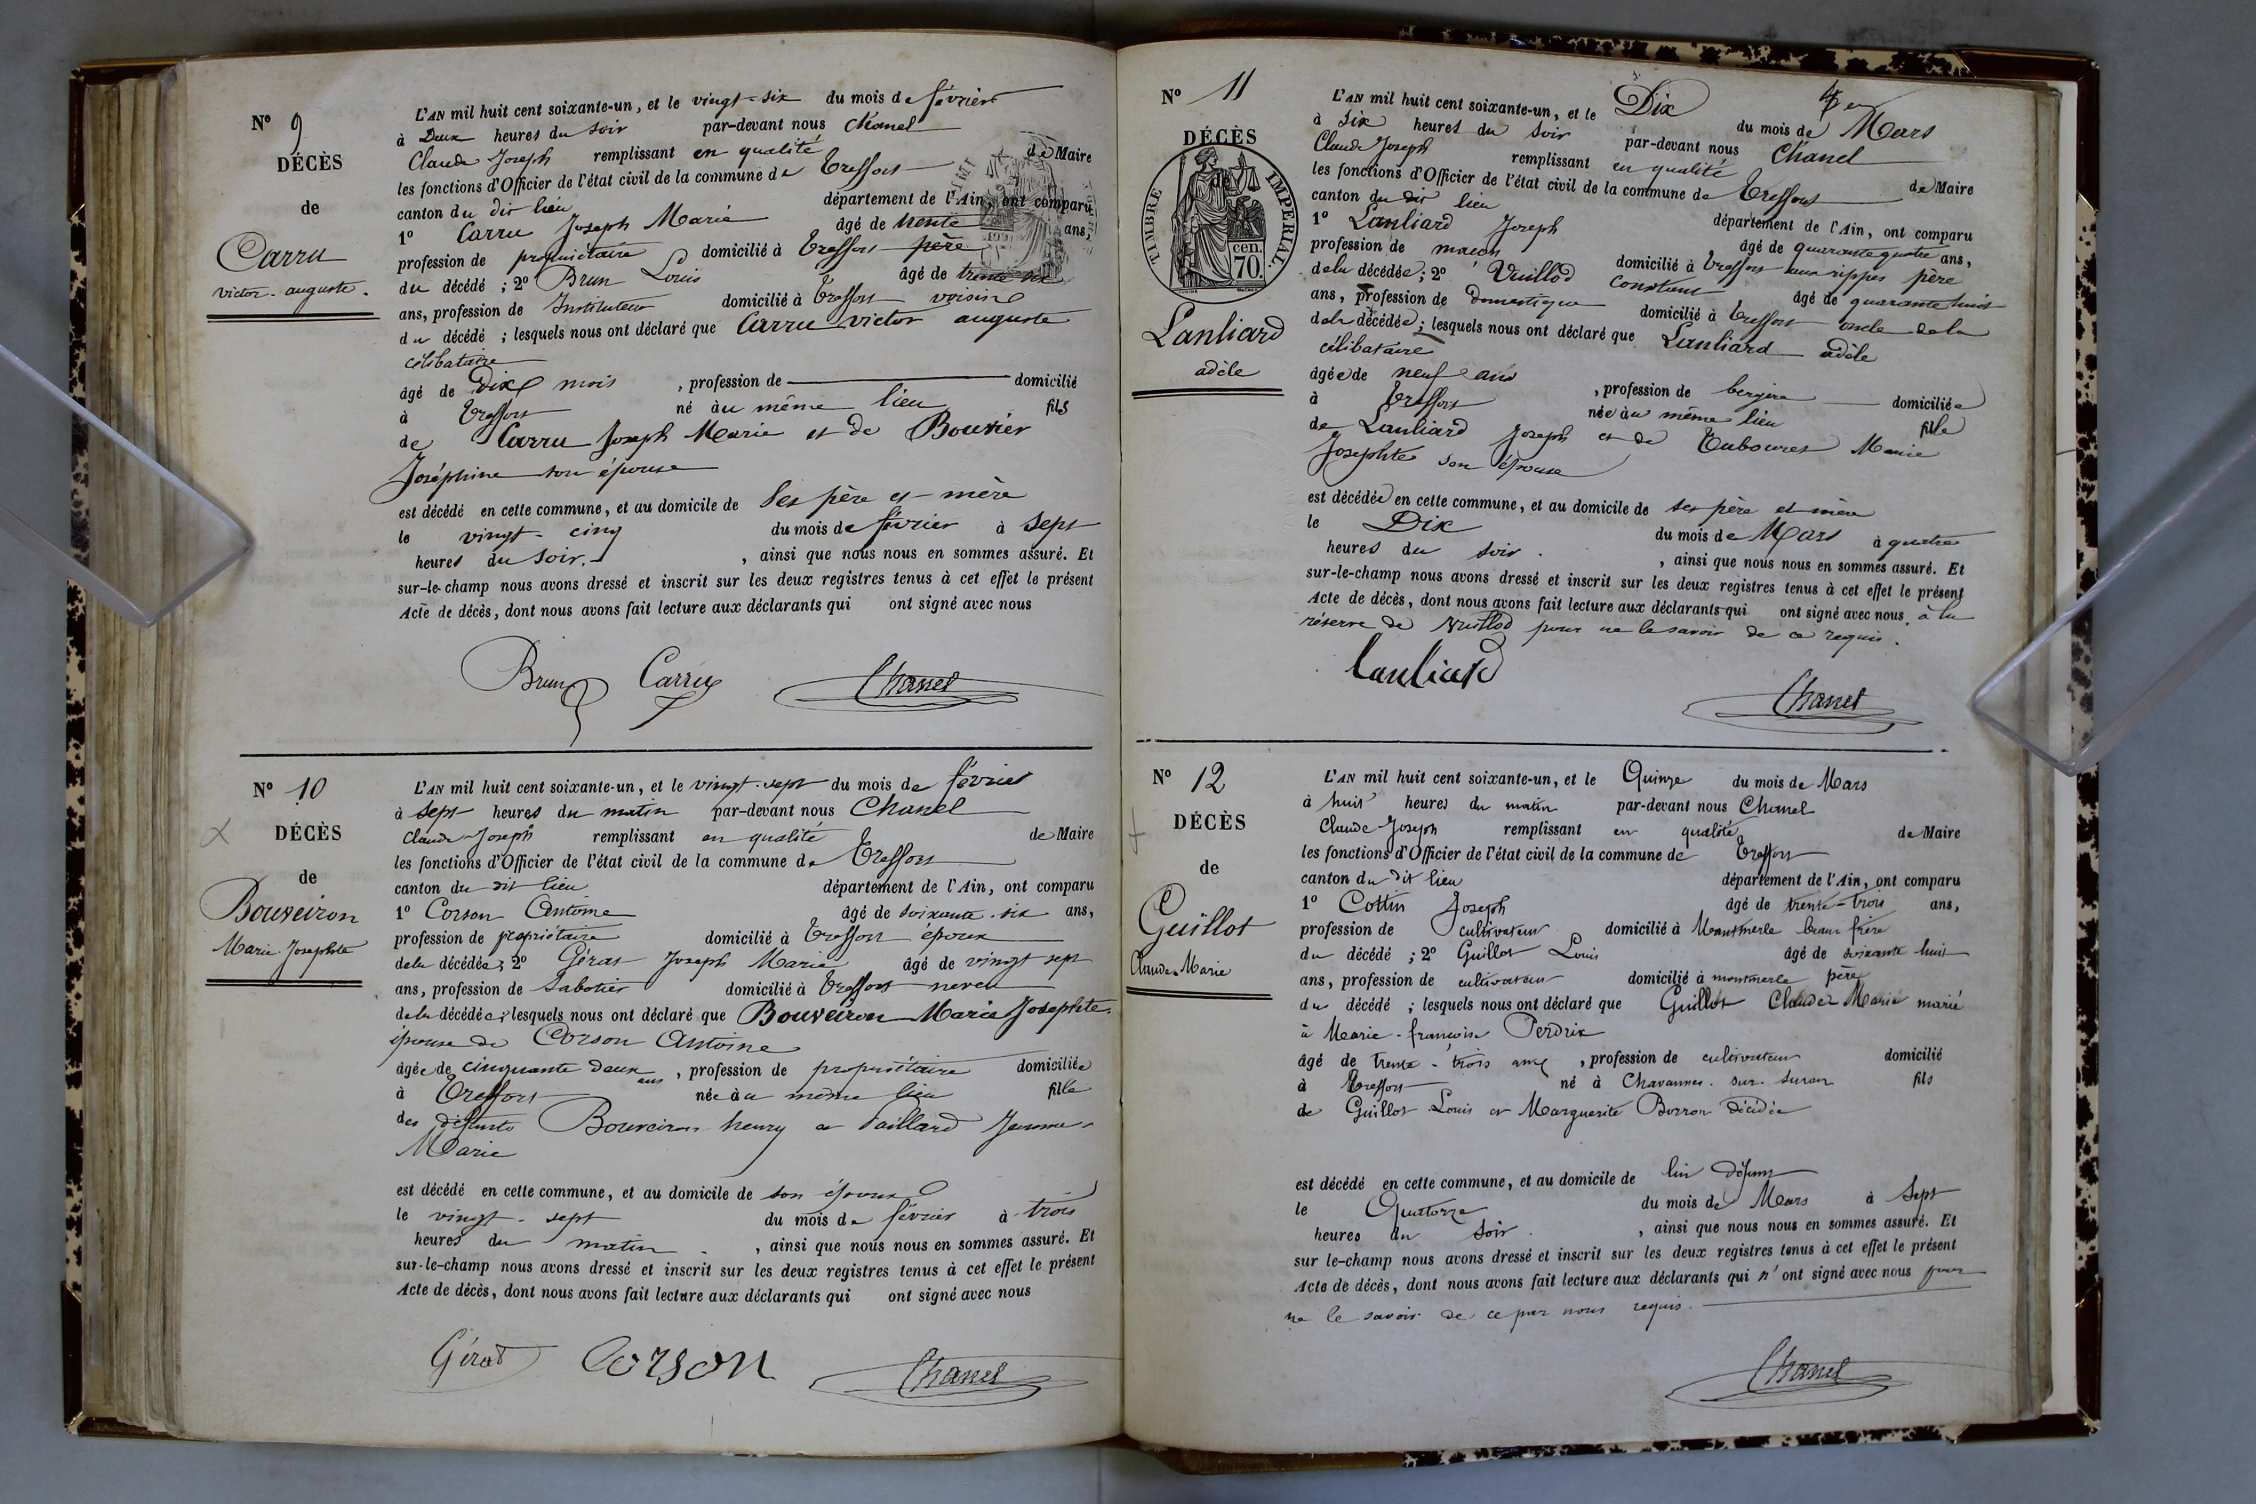 N° 9
DÉCÈS
de
Carru
victor-auguste.
L'AN mil huit cent soixante-un, et le vingt-six du mois de février
à Deux heures du soir par-devant nous Chanel
Claude Joseph remplissant en qualité de Maire
les fonctions d'Officier de l'état civil de la commune de Treffort
canton du dit lieu département de l'Ain, ont comparu
1° Carru Joseph Marie âgé de trente ans,
profession de propriétaire domicilié à Treffort père
du décédé ; 2° Brun Louis âgé de trente six
ans, profession de Instituteur domicilié à Treffort voisin
du décédé ; lesquels nous ont déclaré que Carru victor auguste
célibataire
âgé de Dix mois , profession de domicilié
à Treffort né au même lieu fils
de Carru Joseph Marie et de Bouvier
Joséphine son épouse
est décédé en cette commune, et au domicile de Ses père et mère
le vingt-cinq du mois de février à Sept
heures du Soir. , ainsi que nous nous en sommes assuré. Et
sur-le-champ nous avons dressé et inscrit sur les deux registres tenus à cet effet le présent
Acte de décès, dont nous avons fait lecture aux déclarants qui ont signé avec nous
Brun Carru Chanel
N° 10
DÉCÈS
de
Bouveiron
Marie Josephte
L'AN mil huit cent soixante-un, et le vingt-sept du mois de février
à Sept heures du matin par-devant nous Chanel
Claude Joseph remplissant en qualité de Maire
les fonctions d'Officier de l'état civil de la commune de Treffort
canton du dit lieu département de l'Ain, ont comparu
1° Corson Antoine âgé de soixante-six ans,
profession de propriétaire domicilié à Treffort époux
de la décédée ; 2° Géras Joseph Marie âgé de vingt sept
ans, profession de Sabotier domicilié à Treffort neveu
de la décédée ; lesquels nous ont déclaré que Bouveiron Marie Josephte
épouse de Corson Antoine
âgée de cinquante deux ans , profession de propriétaire domiciliée
à Treffort née au même lieu fille
des défunts Bouveiron henry et Paillard Jeanne
Marie
est décédé en cette commune, et au domicile de son époux
le vingt-sept du mois de février à trois
heures du matin , ainsi que nous nous en sommes assuré. Et
sur-le-champ nous avons dressé et inscrit sur les deux registres tenus à cet effet le présent
Acte de décès, dont nous avons fait lecture aux déclarants qui ont signé avec nous
Corson Chanel
N° 11
DÉCÈS
TIMBRE IMPÉRIAL.
70 cen.
Lanliard
adèle
L'AN mil huit cent soixante-un, et le Dix du mois de Mars
à six heures du soir par-devant nous Chanel
Claude Joseph remplissant en qualité de Maire
les fonctions d'Officier de l'état civil de la commune de Treffort
canton du dit lieu département de l'Ain, ont comparu
1° Lanliard Joseph âgé de quarante quatre ans,
profession de maçon domicilié à Treffort aux rippes père
de la décédée ; 2° Vuillod Constant âgé de quarante huit
ans, profession de domestique domicilié à Treffort oncle de la
de la décédée ; lesquels nous ont déclaré que Lanliard adèle
célibataire
âgée de neuf ans , profession de bergère domiciliée
à Treffort née au même lieu fille
de Lanliard Joseph et de Marie
Josephte son épouse
est décédée en cette commune, et au domicile de ses père et mère
le Dix du mois de Mars à quatre
heures du soir. , ainsi que nous nous en sommes assuré. Et
sur-le-champ nous avons dressé et inscrit sur les deux registres tenus à cet effet le présent
Acte de décès, dont nous avons fait lecture aux déclarants qui ont signé avec nous, à la
réserve de Vuillod pour ne le savoir de ce requis.
Lanliard Chanel
N° 12
DÉCÈS
de
Guillot
Claude Marie
L'AN mil huit cent soixante-un, et le Quinze du mois de Mars
à huit heures du matin par-devant nous Chanel
Claude Joseph remplissant en qualité de Maire
les fonctions d'Officier de l'état civil de la commune de Treffort
canton du dit lieu département de l'Ain, ont comparu
1° Cottin Joseph âgé de trente-trois ans,
profession de cultivateur domicilié à Montmerle beau frère
du décédé ; 2° Guillot Louis âgé de soixante huit
ans, profession de cultivateur domicilié à montmerle père
du décédé ; lesquels nous ont déclaré que Guillot Claude Marie marié
à Marie-françoise Perdrix
âgé de trente-trois ans , profession de cultivateur domicilié
à Treffort né à Chavannes-sur-Suran fils
de Guillot Louis et Marguerite Borron décédée
est décédé en cette commune, et au domicile de lui défunt
le Quatorze du mois de Mars à Sept
heures du soir. , ainsi que nous nous en sommes assuré. Et
sur le-champ nous avons dressé et inscrit sur les deux registres tenus à cet effet le présent
Acte de décès, dont nous avons fait lecture aux déclarants qui n'ont signé avec nous pour
ne le savoir de ce par nous requis.
Chanel